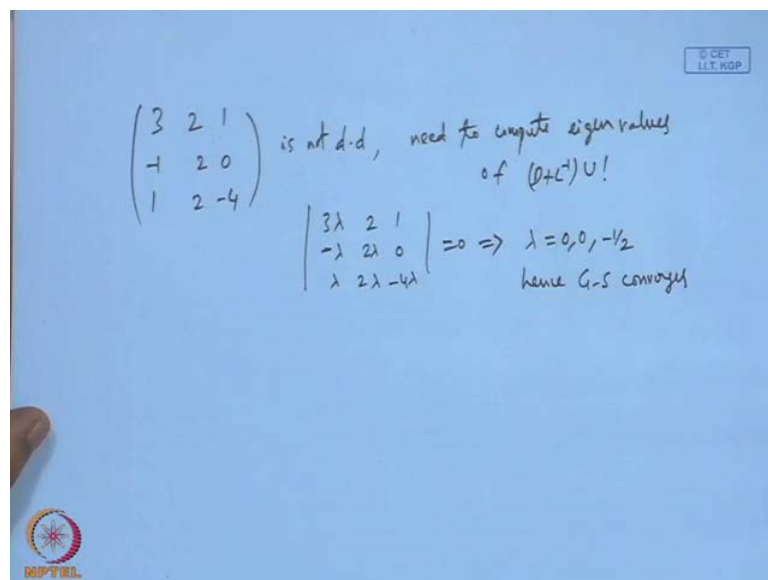 © CET
I.I.T. KGP
3 2 1
-1 2 0
1 2 -4
is not d.d, need to compute eigen values
of (D+L⁻¹) U!
3λ 2 1
-λ 2λ 0
λ 2λ -4λ
=0 => λ = 0, 0, -1/2
hence G-S converges
NPTEL